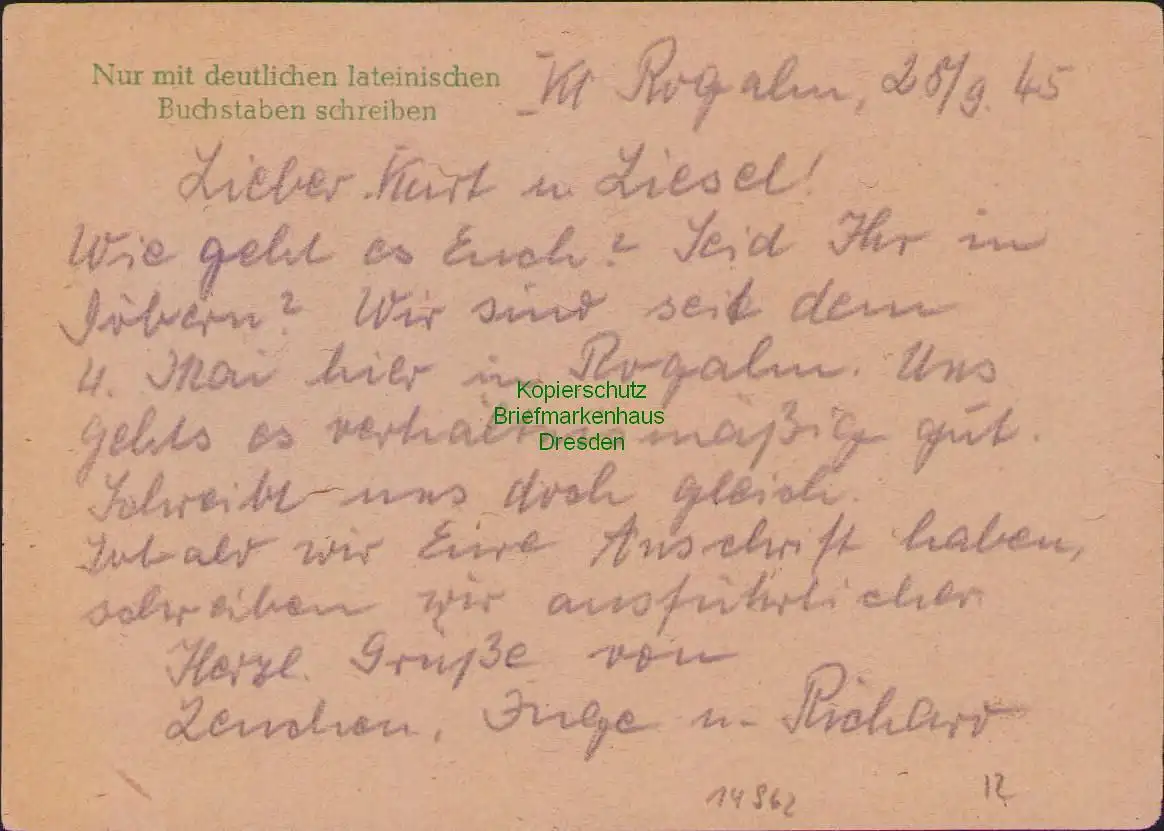 Nur mit deutlichen lateinischen
Buchstaben schreiben
Kl Rogalm, 28/9. 45
Lieber Kurt u Liesel!
Wie geht es Euch? Seid Ihr in
Döbern? Wir sind seit dem
4. Mai hier in Rogalm. Uns
gehts es verhältnismäßig gut.
Schreibt uns doch gleich.
Sobald wir Eure Anschrift haben,
schreiben wir ausführlicher
Herzl. Grüße von
Lenchen, Inge u. Richard
Kopierschutz
Briefmarkenhaus
Dresden
14962
12